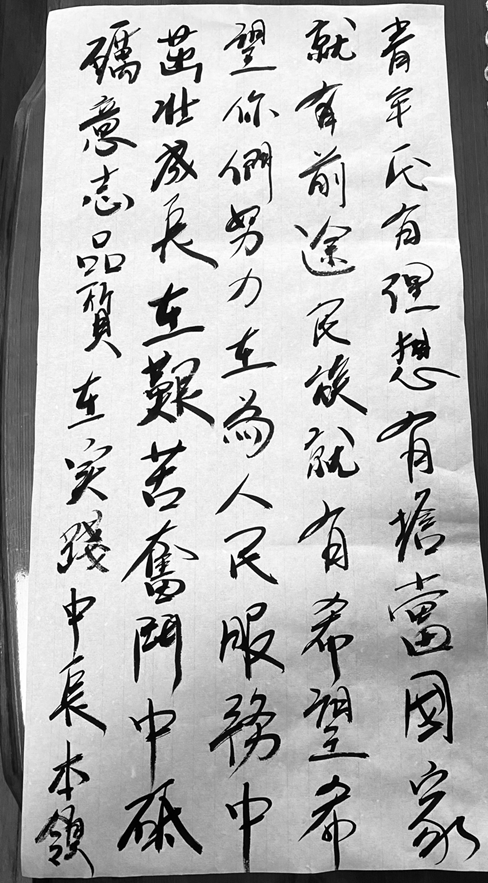 青年民有理想有擔當國家
就有前途民族就有希望希
望你們努力在為人民服務中
茁壯成長在艱苦奮鬥中砥
礪意志品質在实踐中長本領